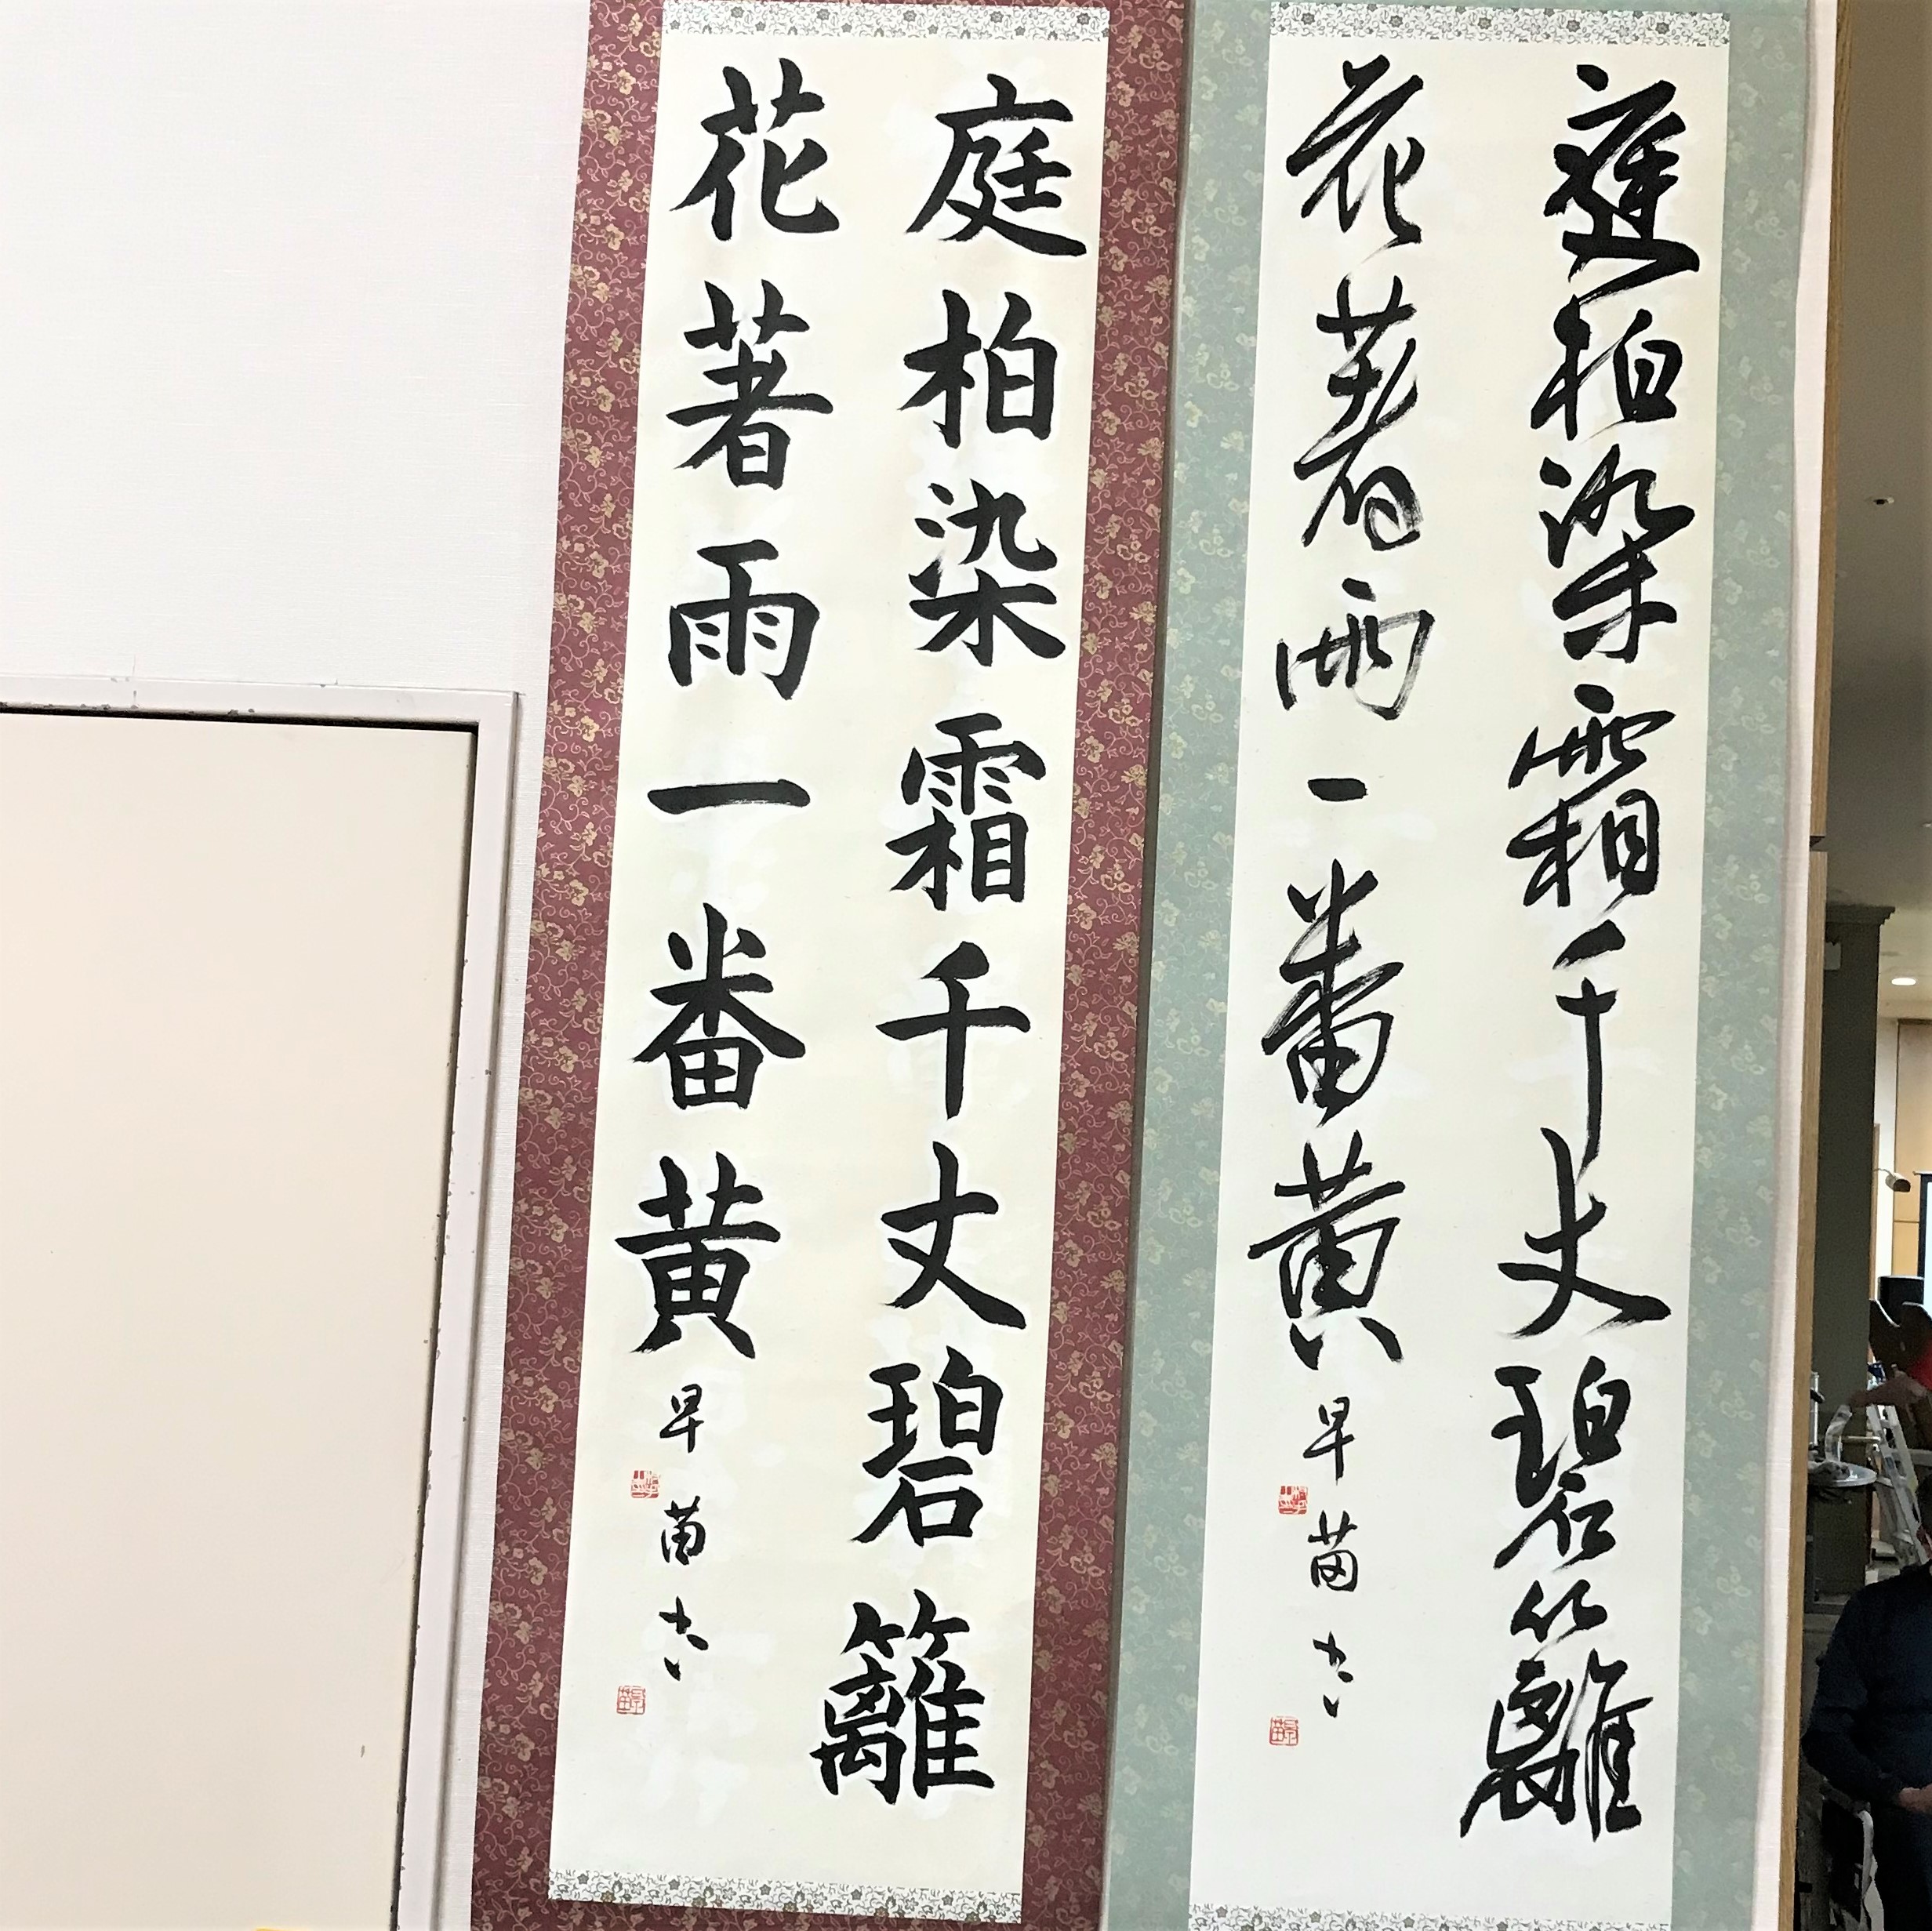 庭柏染霜千丈碧籬
花著雨一番黄
早苗書
庭柏染霜千丈碧籬
花著雨一番黄
早苗書